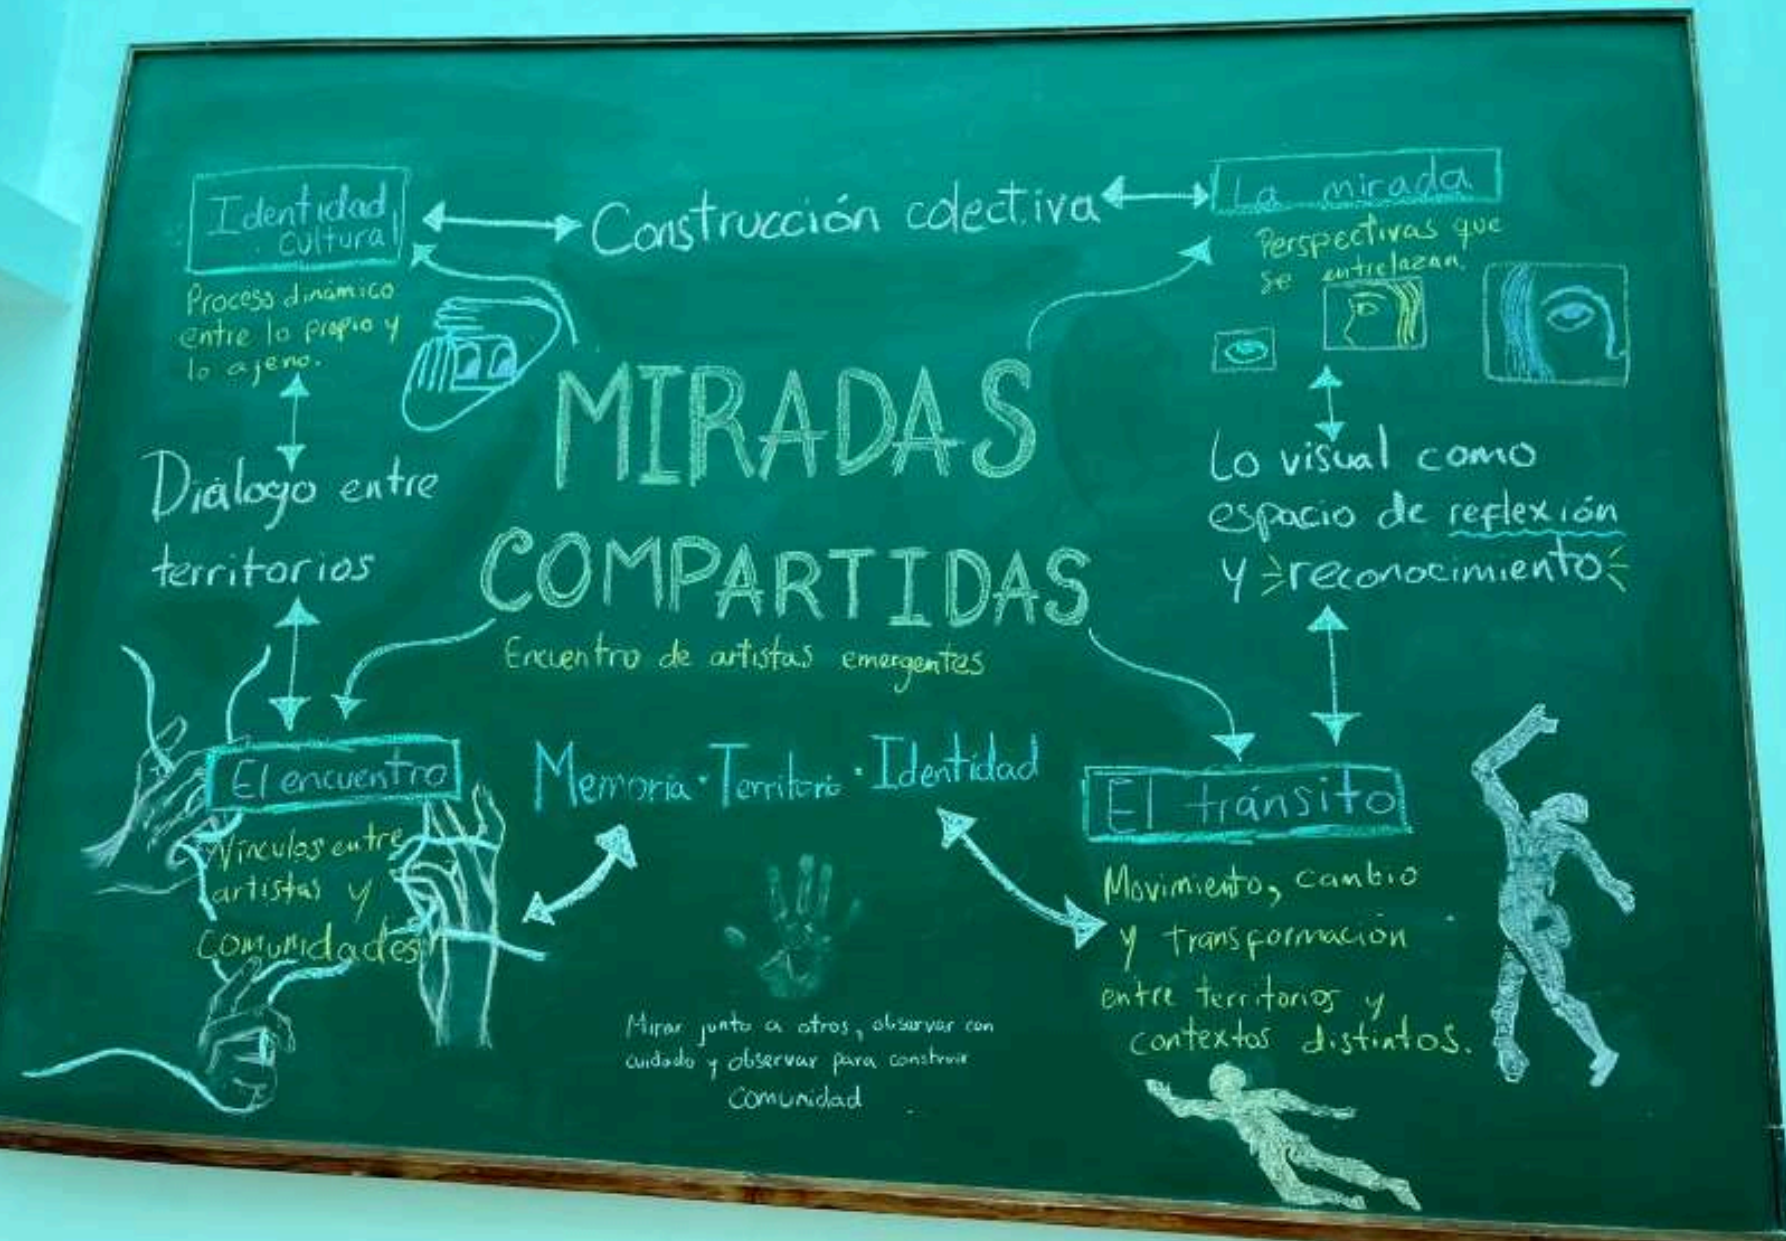 Identidad
cultural
Proceso dinámico
entre lo propio y
lo ajeno.
Construcción colectiva
La mirada
Perspectivas que
se entrelazan.
MIRADAS
COMPARTIDAS
Encuentro de artistas emergentes
Diálogo entre
territorios
Lo visual como
espacio de reflexión
y reconocimiento
El encuentro
Vínculos entre
artistas y
comunidades
Memoria · Territorio · Identidad
El tránsito
Movimiento, cambio
y transformación
entre territorios y
contextos distintos.
Mirar junto a otros, observar con
cuidado y observar para construir
Comunidad